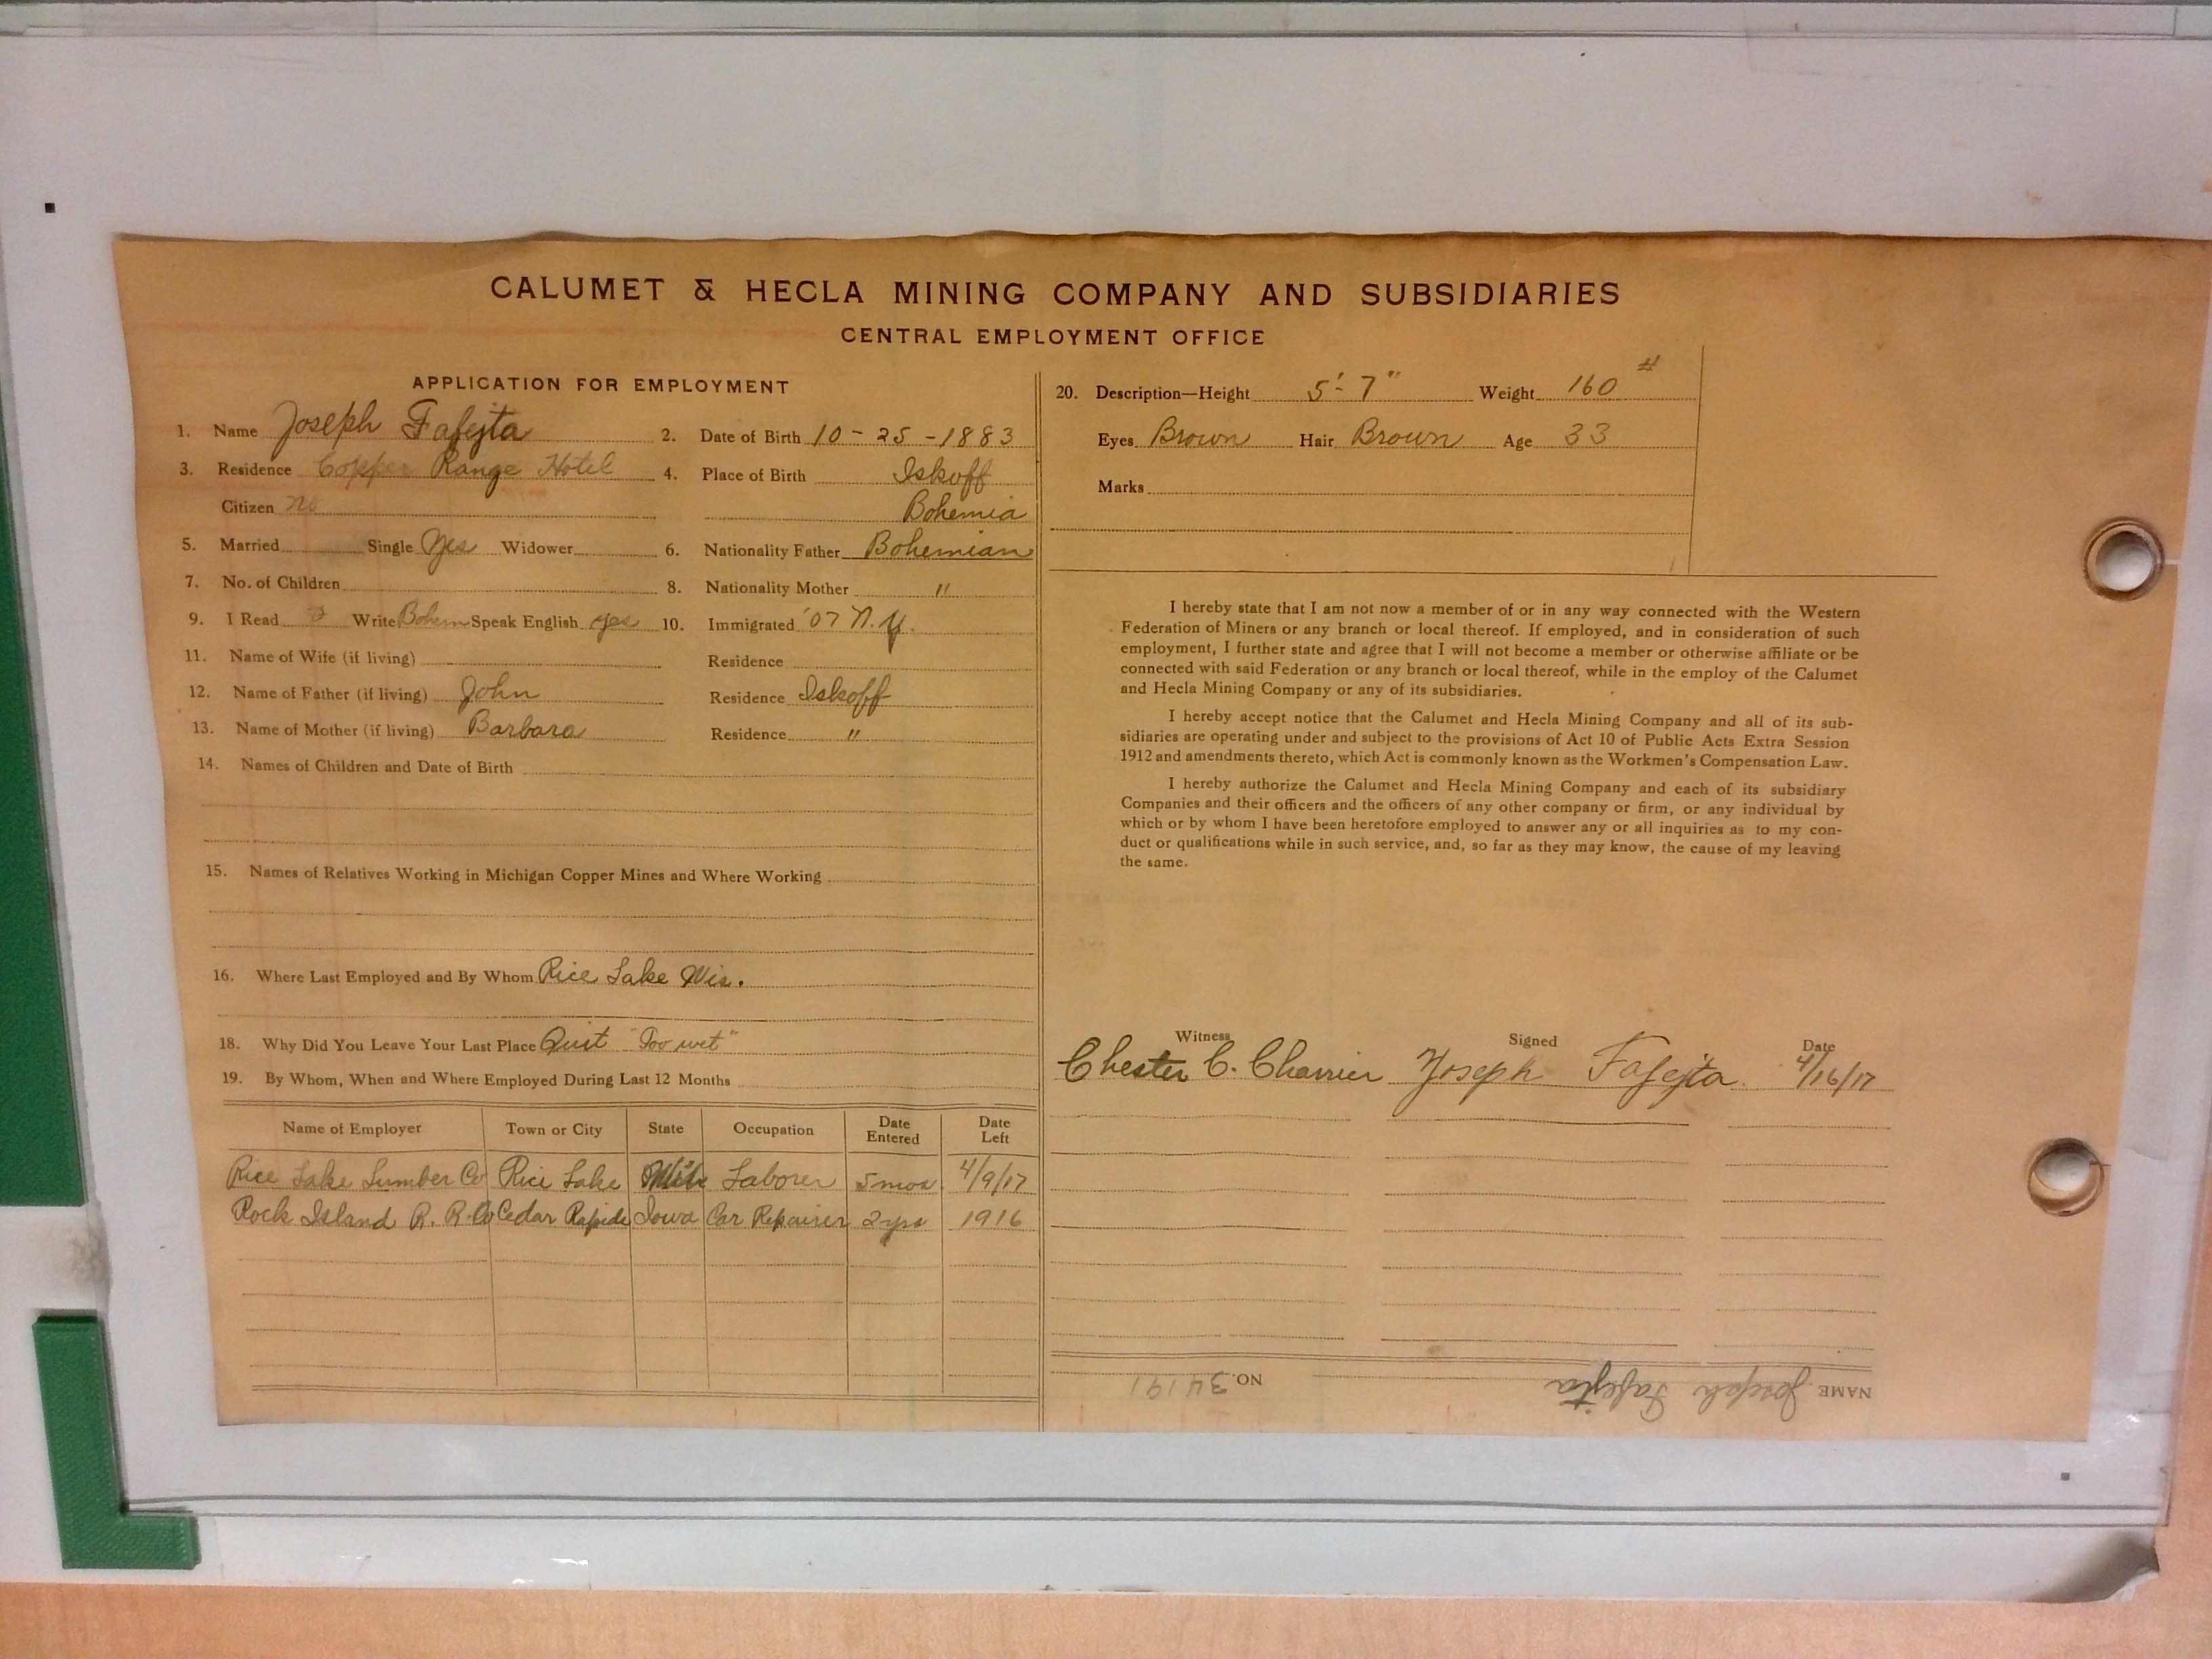 CALUMET & HECLA MINING COMPANY AND SUBSIDIARIES
CENTRAL EMPLOYMENT OFFICE
APPLICATION FOR EMPLOYMENT
1. Name Joseph Fafejta 2. Date of Birth 10-25-1883
3. Residence Copper Range Hotel 4. Place of Birth Iskoff
Citizen no Bohemia
5. Married Single Yes Widower 6. Nationality Father Bohemian
7. No. of Children 8. Nationality Mother "
9. I Read Write Bohem Speak English yes 10. Immigrated '07 N.Y.
11. Name of Wife (if living) Residence
12. Name of Father (if living) John Residence Iskoff
13. Name of Mother (if living) Barbara Residence "
14. Names of Children and Date of Birth
15. Names of Relatives Working in Michigan Copper Mines and Where Working
16. Where Last Employed and By Whom Rice Lake Wis.
18. Why Did You Leave Your Last Place Quit "Too wet"
19. By Whom, When and Where Employed During Last 12 Months
Name of Employer Town or City State Occupation Date Entered Date Left
Rice Lake Lumber Co Rice Lake Laborer 5 mos. 4/9/17
Rock Island R. R. Co Cedar Rapids Iowa Car Repairer 2 yrs 1916
20. Description—Height 5'-7" Weight 160 #
Eyes Brown Hair Brown Age 33
Marks
I hereby state that I am not now a member of or in any way connected with the Western
Federation of Miners or any branch or local thereof. If employed, and in consideration of such
employment, I further state and agree that I will not become a member or otherwise affiliate or be
connected with said Federation or any branch or local thereof, while in the employ of the Calumet
and Hecla Mining Company or any of its subsidiaries.
I hereby accept notice that the Calumet and Hecla Mining Company and all of its sub-
sidiaries are operating under and subject to the provisions of Act 10 of Public Acts Extra Session
1912 and amendments thereto, which Act is commonly known as the Workmen's Compensation Law.
I hereby authorize the Calumet and Hecla Mining Company and each of its subsidiary
Companies and their officers and the officers of any other company or firm, or any individual by
which or by whom I have been heretofore employed to answer any or all inquiries as to my con-
duct or qualifications while in such service, and, so far as they may know, the cause of my leaving
the same.
Witness Signed Date
Chester C. Charrier Joseph Fafejta 4/16/17
NAME Joseph Fafejta NO. 34191